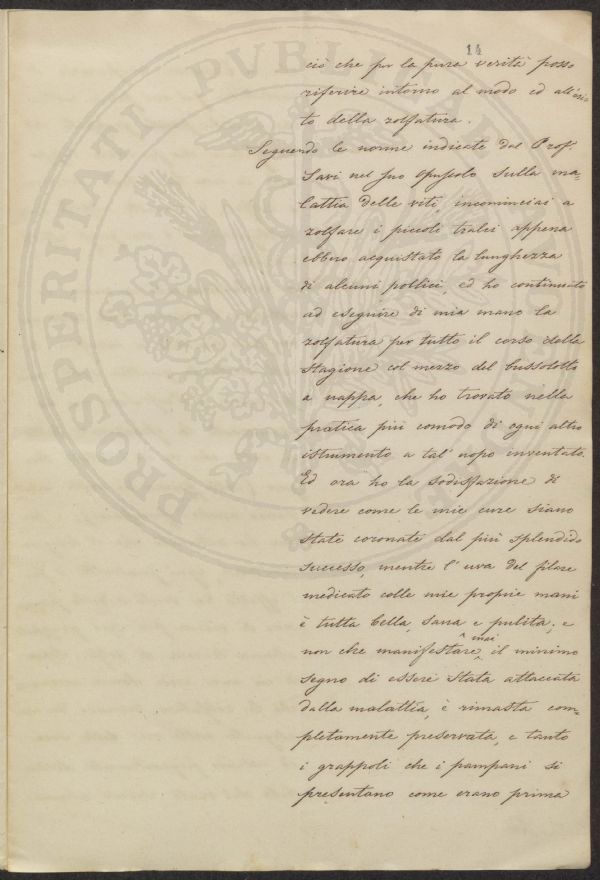 14
ciò che per la pura verità posso
riferire intorno al modo ed all'esi-
to della zolfatura.
Seguendo le norme indicate dal Prof.
Savi nel suo Opuscolo sulla ma=
lattia delle viti, incominciai a
zolfare i piccoli tralci appena
ebbero acquistato la lunghezza
di alcuni pollici, ed ho continuato
ad eseguire di mia mano la
zolfatura per tutto il corso della
stagione col mezzo del bussolotto
a nappa, che ho trovato nella
pratica più comodo di ogni altro
istrumento a tal' uopo inventato.
Ed ora ho la sodisfazione di
vedere come le mie cure siano
state coronate dal più splendido
successo, mentre l'uva del filare
medicato colle mie proprie mani
è tutta bella, sana e pulita; e
non che manifestare mai il minimo
segno di essere stata attaccata
dalla malattia, è rimasta com=
pletamente preservata, e tanto
i grappoli che i pampani si
presentano come erano prima
PROSPERITATI PVBLICAE